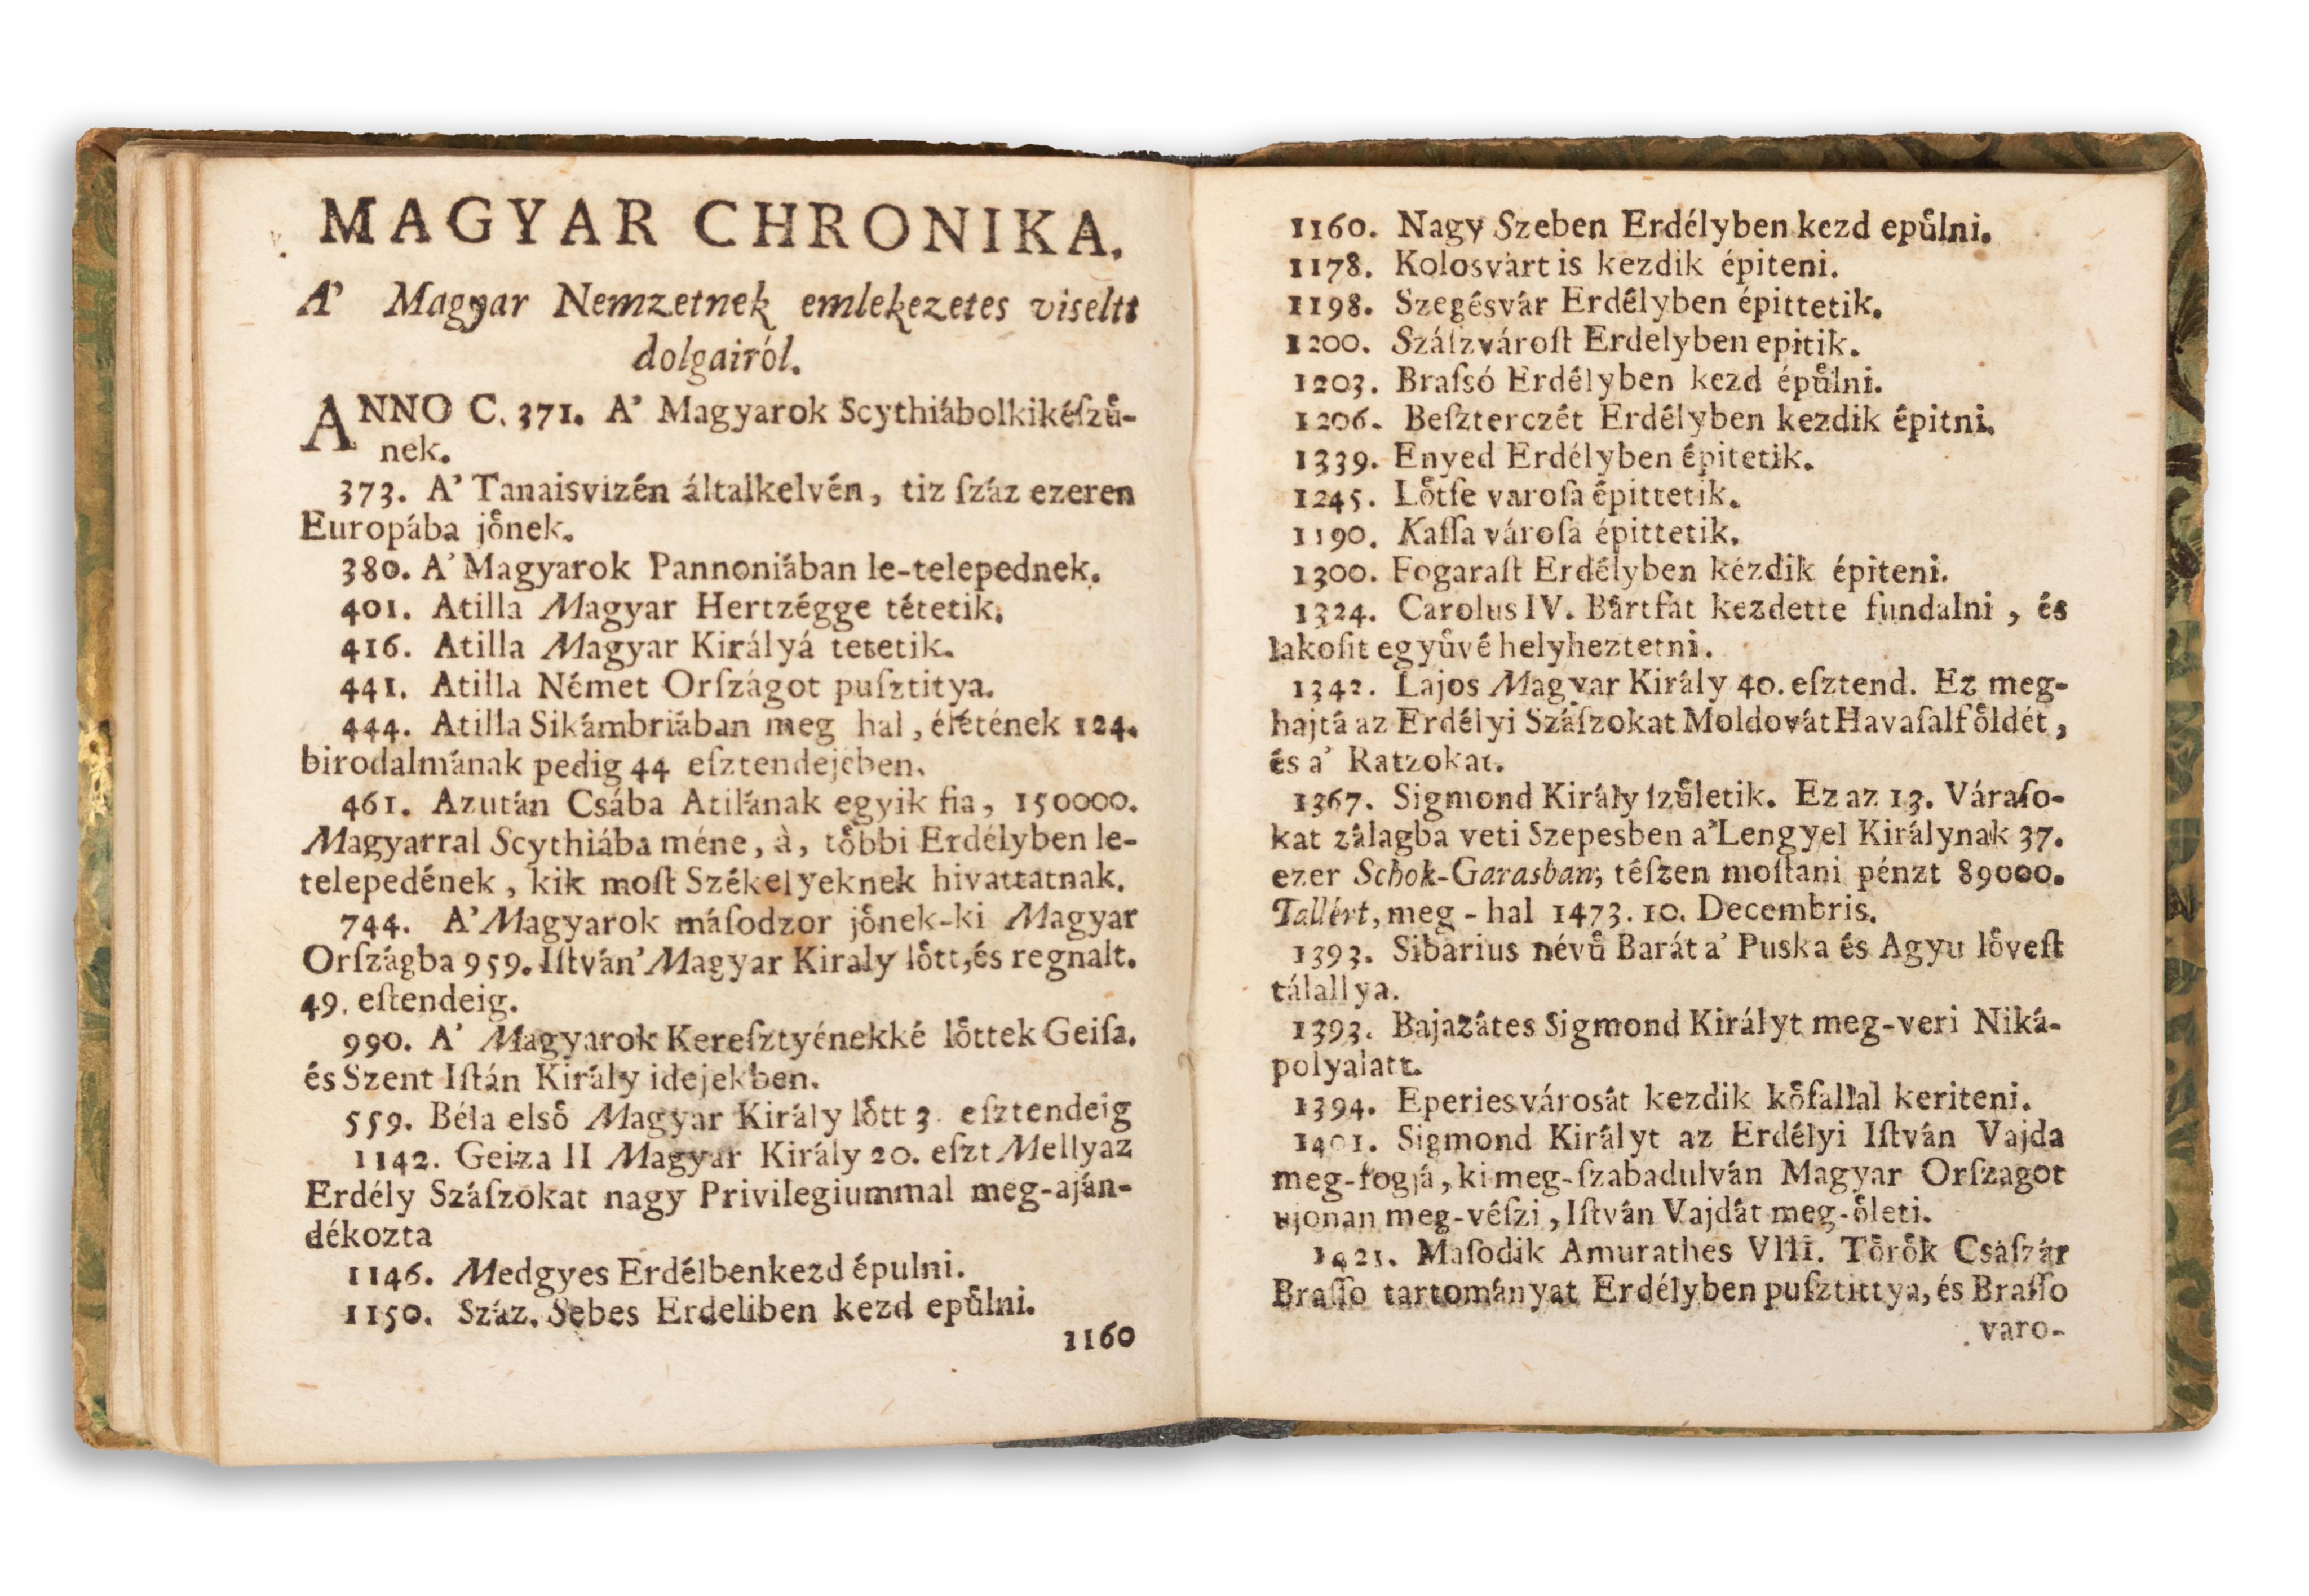 MAGYAR CHRONIKA.
A' Magyar Nemzetnek emlekezetes viseltt
dolgairól.
ANNO C. 371. A' Magyarok Scythiábolkikéſzů-
nek.
373. A' Tanaisvizén áltaIkelvén, tiz ſzáz ezeren
Európába jőnek.
380. A' Magyarok Pannoniában le-telepednek.
401. Atilla Magyar Hertzégge tétetik.
416. Atilla Magyar Királyá tetetik.
441. Atilla Német Orſzágot puſztitya.
444. Atilla Sikámbriában meg hal, életének 124.
birodalmának pedig 44 eſztendejeben.
461. Azután Csába Atilának egyik fia, 150000.
Magyarral Scythiába méne, à, többi Erdélyben le-
telepedének, kik moſt Székelyeknek hivattatnak.
744. A' Magyarok máſodzor jőnek-ki Magyar
Orſzágba 959. Iſtván' Magyar Kiraly lőtt, és regnalt.
49. eſtendeig.
990. A' Magyarok Kereſztyénekké lőttek Geiſa.
és Szent Iſtán Király idejekben.
559. Béla első Magyar Király lőtt 3. eſztendeig
1142. Geiza II Magyar Király 20. eſzt Mellyaz
Erdély Száſzokat nagy Privilegiummal meg-aján-
dékozta
1146. Medgyes Erdélbenkezd épulni.
1150. Száz. Sebes Erdeliben kezd epůlni.
1160
1160. Nagy Szeben Erdélyben kezd epůlni.
1178. Kolosvárt is kezdik épiteni.
1198. Szegésvár Erdélyben épittetik.
1200. Száſzvároſt Erdelyben epitik.
1203. Braſsó Erdélyben kezd épůlni.
1206. Beſzterczét Erdélyben kezdik épitni.
1339. Enyed Erdélyben épitetik.
1245. Lőtſe varoſa épittetik.
1190. Kaſſa vároſa épittetik.
1300. Fogaraſt Erdélyben kézdik épiteni.
1324. Carolus IV. Bártfát kezdette fundalni, és
lakoſit egyůvé helyheztetni.
1342. Lajos Magyar Király 40. eſztend. Ez meg-
hajtá az Erdélyi Száſzokat Moldovát Havaſalfőldét,
és a' Ratzokat.
1367. Sigmond Király ſzůletik. Ez az 13. Váraſo-
kat zálagba veti Szepesben a' Lengyel Királynak 37.
ezer Schok-Garasban; téſzen moſtani pénzt 89000.
Tallért, meg-hal 1473. 10. Decembris.
1393. Sibarius névů Barát a' Puska és Agyu lőveſt
tálallya.
1393. Bajazátes Sigmond Királyt meg-veri Niká-
polyalatt.
1394. Eperiesvárosát kezdik kőfallal keriteni.
1401. Sigmond Királyt az Erdélyi Iſtván Vajda
meg-fogjá, ki meg-ſzabadulván Magyar Orſzagot
ujonan meg-véſzi, Iſtván Vajdát meg-őleti.
1421. Maſodik Amurathes VIII. Tőrők Csáſzár
Braſſo tartományat Erdélyben puſztittya, és Braſſo
varo-